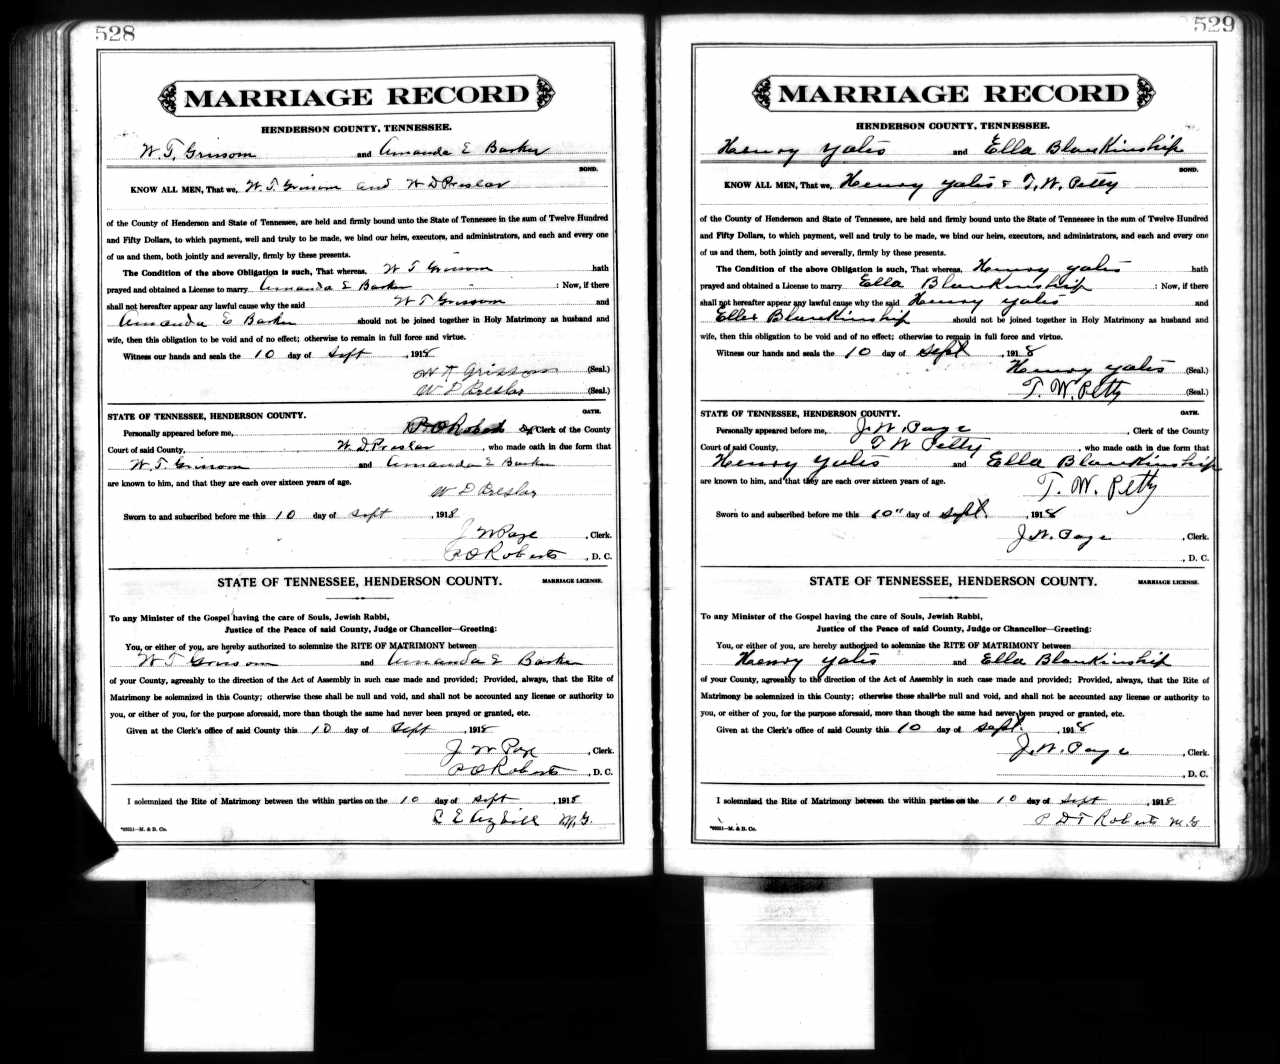 528
MARRIAGE RECORD
HENDERSON COUNTY, TENNESSEE.
W. T. Grissom and Amanda E Barker
BOND.
KNOW ALL MEN, That we, W. T. Grissom and W D Preslar
of the County of Henderson and State of Tennessee, are held and firmly bound unto the State of Tennessee in the sum of Twelve Hundred
and Fifty Dollars, to which payment, well and truly to be made, we bind our heirs, executors, and administrators, and each and every one
of us and them, both jointly and severally, firmly by these presents.
The Condition of the above Obligation is such, That whereas, W T Grissom hath
prayed and obtained a License to marry Amanda E Barker : Now, if there
shall not hereafter appear any lawful cause why the said W T Grissom and
Amanda E Barker should not be joined together in Holy Matrimony as husband and
wife, then this obligation to be void and of no effect; otherwise to remain in full force and virtue.
Witness our hands and seals the 10 day of Sept , 1918
W T Grissom (Seal.)
W D Preslar (Seal.)
OATH.
STATE OF TENNESSEE, HENDERSON COUNTY.
Personally appeared before me, P O Roberts Clerk of the County
Court of said County, W. D. Preslar , who made oath in due form that
W. T. Grissom and Amanda E Barker
are known to him, and that they are each over sixteen years of age.
W D Preslar
Sworn to and subscribed before me this 10 day of Sept , 1918
J W Page , Clerk.
P O Roberts , D. C.
STATE OF TENNESSEE, HENDERSON COUNTY. MARRIAGE LICENSE.
To any Minister of the Gospel having the care of Souls, Jewish Rabbi,
Justice of the Peace of said County, Judge or Chancellor—Greeting:
You, or either of you, are hereby authorized to solemnize the RITE OF MATRIMONY between
W T Grissom and Amanda E Barker
of your County, agreeably to the direction of the Act of Assembly in such case made and provided; Provided, always, that the Rite of
Matrimony be solemnized in this County; otherwise these shall be null and void, and shall not be accounted any license or authority to
you, or either of you, for the purpose aforesaid, more than though the same had never been prayed or granted, etc.
Given at the Clerk's office of said County this 10 day of Sept , 1918
J W Page , Clerk.
P O Roberts , D. C.
I solemnized the Rite of Matrimony between the within parties on the 10 day of Sept , 1918
M. G.
M. & B. Co.
529
MARRIAGE RECORD
HENDERSON COUNTY, TENNESSEE.
Henry Yates and Ella Blankinship
BOND.
KNOW ALL MEN, That we, Henry Yates & T. W. Petty
of the County of Henderson and State of Tennessee, are held and firmly bound unto the State of Tennessee in the sum of Twelve Hundred
and Fifty Dollars, to which payment, well and truly to be made, we bind our heirs, executors, and administrators, and each and every one
of us and them, both jointly and severally, firmly by these presents.
The Condition of the above Obligation is such, That whereas, Henry Yates
prayed and obtained a License to marry Ella Blankinship : Now, if there
shall not hereafter appear any lawful cause why the said Henry Yates and
Ella Blankinship should not be joined together in Holy Matrimony as husband and
wife, then this obligation to be void and of no effect; otherwise to remain in full force and virtue.
Witness our hands and seals the 10 day of Sept , 1918
Henry Yates (Seal.)
T. W. Petty (Seal.)
OATH.
STATE OF TENNESSEE, HENDERSON COUNTY.
Personally appeared before me, J. W. Page , Clerk of the County
Court of said County, T W Petty , who made oath in due form that
Henry Yates and Ella Blankinship
are known to him, and that they are each over sixteen years of age.
T. W. Petty
Sworn to and subscribed before me this 10" day of Sept. , 1918
J. W. Page , Clerk.
, D. C.
STATE OF TENNESSEE, HENDERSON COUNTY. MARRIAGE LICENSE.
To any Minister of the Gospel having the care of Souls, Jewish Rabbi,
Justice of the Peace of said County, Judge or Chancellor—Greeting:
You, or either of you, are hereby authorized to solemnize the RITE OF MATRIMONY between
Henry Yates and Ella Blankinship
of your County, agreeably to the direction of the Act of Assembly in such case made and provided; Provided, always, that the Rite of
Matrimony be solemnized in this County; otherwise these shall be null and void, and shall not be accounted any license or authority to
you, or either of you, for the purpose aforesaid, more than though the same had never been prayed or granted, etc.
Given at the Clerk's office of said County this 10 day of Sept. , 1918
J. W. Page , Clerk.
, D. C.
I solemnized the Rite of Matrimony between the within parties on the 10 day of Sept , 1918
P D T Roberts M. G
M. & B. Co.